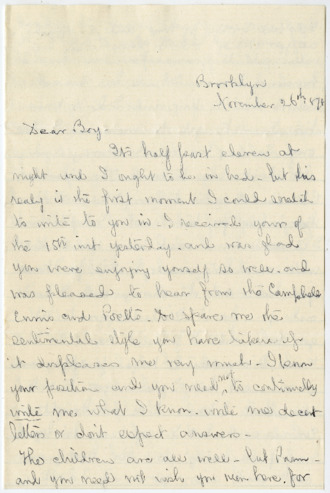 Brooklyn
November 26th 187
Dear Boy.
Its half past eleven at
night and I ought to be in bed. but this
realy is the first moment I could snatch
to write to you in. I received yours of
the 15th inst yesterday. and was glad
you were enjoying yourself so well. and
was pleased to hear from the Campbells
Ennis and Do spare me the
sentimental style you have taken up
it displeases me very much. I know
your position and you need not to continually
write me what I know. write me decent
letters or don't expect answers.
The children are all well.
and you need not wish you were here, for